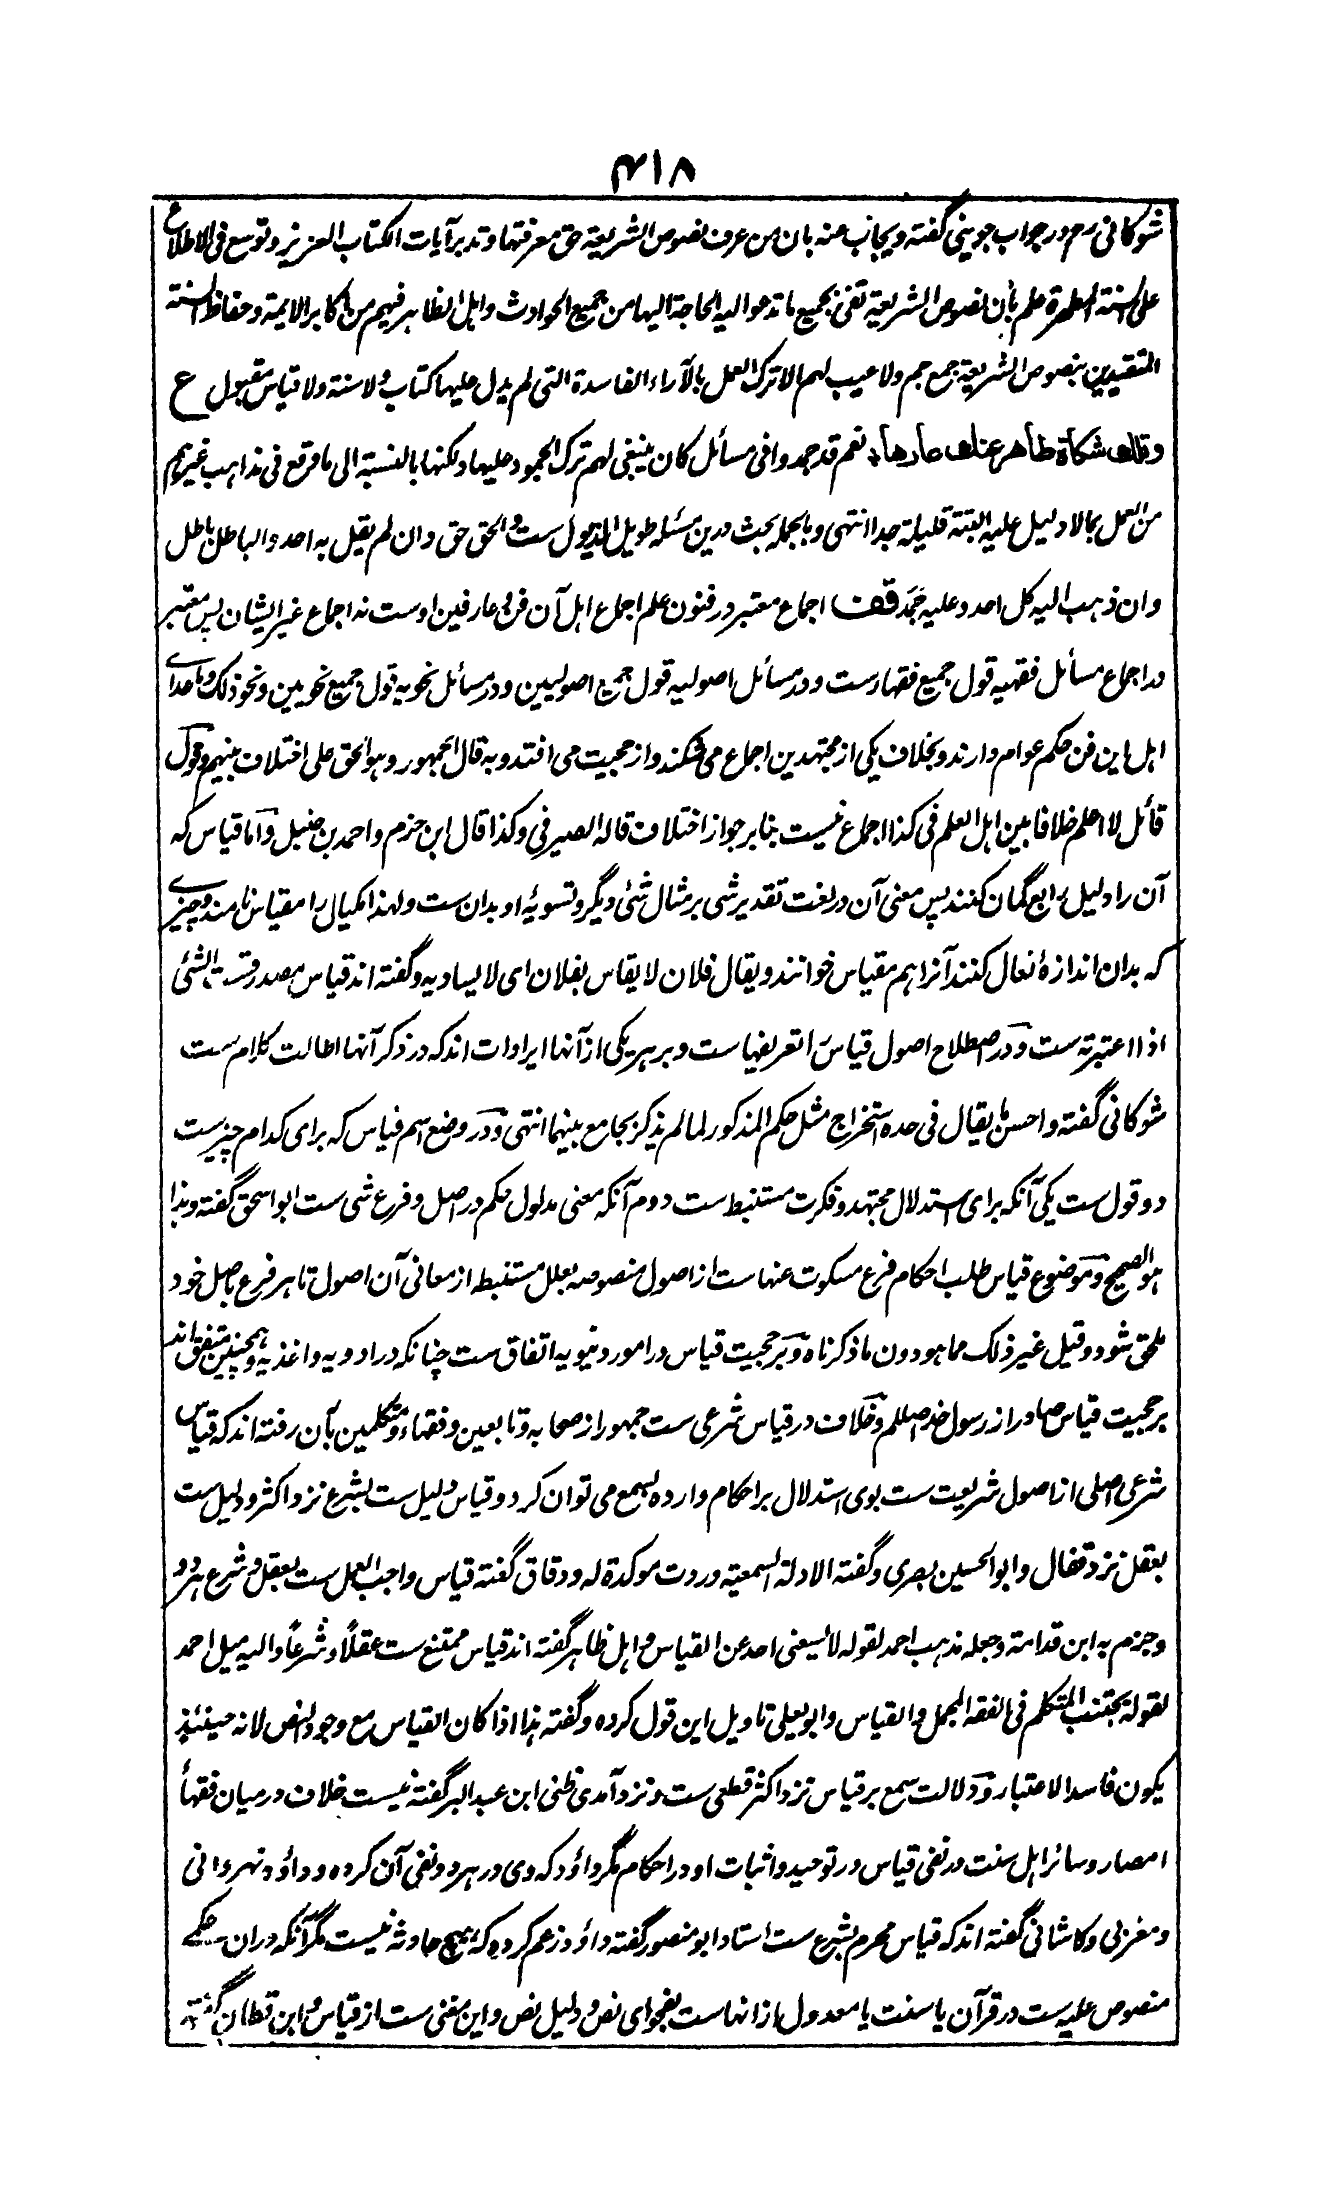 ۴۱۸
شوکانی رح در جواب جوینی گفته و یجاب عنه بان من عرف نصوص الشریعة حق معرفتها و تدبر آیات الکتاب العزیز و توسع فی الاطلاع
علی السنة المطهرة علم بأن نصوص الشریعة تفی بجمیع ما تدعو الیه الحاجة الیها من جمیع الحوادث و اهل الظاهر فیهم من اکابر الایمة و حفاظ السنة
المتقیدین بنصوص الشریعة جمع جم ولا عیب لهم الا ترک العمل بالآراء الفاسدة التی لم یدل علیها کتاب ولا سنة ولا قیاس مقبول ع
وتلک شکاة ظاهر عنک عارها، نعم قد جمدوا فی مسائل کان ینبغی لهم ترک الجمود علیها ولکنها بالنسبة الی ما وقع فی مذاهب غیرهم
من العمل بمالا دلیل علیه البتة قلیلة جدا انتهی و بالجمله بحث درین مسئله طویل الذیول ست و الحق حق وان لم یقل به احد والباطل باطل
وان ذهب الیه کل احد وعلیه جمد قف اجماع معتبر در فنون علم اجماع اهل آن فن عارفین اوست نه اجماع غیر ایشان پس معتبر
در اجماع مسائل فقهیه قول جمیع فقهارست و در مسائل اصولیه قول جمیع اصولیین و در مسائل نحویه قول جمیع نحویین و نحو ذلک و ماعدای
اهل این فن حکم عوام دارند و بخلاف یکی از مجتهدین اجماع می شکند و از حجیت می افتد و به قال الجمهور و هو الحق علی اختلاف بینهم و قول
قائل لا اعلم خلافا بین اهل العلم فی کذا اجماع نیست بنا بر جواز اختلاف قاله الصیرفی و کذا قال ابن حزم و احمد بن حنبل و اما قیاس که
آن را دلیل رابع گمان کنند پس معنی آن در لغت تقدیر شی بر مثال شئی دیگر و تسویۀ او بدان ست و لهذا مکیال را مقیاس نامند و چیزے
که بدان اندازۀ نعال کنند آنرا هم مقیاس خوانند و یقال فلان لا یقاس بفلان ای لا یساویه و گفته اند قیاس مصدر قست الشئی
اذا اعتبرته ست و در اصطلاح اصول قیاس را تعریفهاست و بر هر یکی از آنها ایرادات اند که در ذکر آنها اطالت کلام ست
شوکانی گفته و احسن ما یقال فی حده استخراج مثل حکم المذکور لما لم یذکر بجامع بینهما انتهی و در وضع اسم قیاس که برای کدام چیزست
دو قول ست یکی آنکه برای استدلال مجتهد و فکرت مستنبط ست دوم آنکه معنی مدلول حکم در اصل و فرع شی ست ابو اسحق گفته و هذا
هو الصحیح و موضوع قیاس طلب احکام فرع مسکوت عنهاست از اصول منصوصه بعلل مستنبط از معانی آن اصول تا هر فرع باصل خود
ملحق شود و قیل غیر ذلک مما هو دون ما ذکرناه و بر حجیت قیاس در امور دنیویه اتفاق ست چنانکه در ادویه و اغذیه و همچنین متفق اند
بر حجیت قیاس صادر از رسول خدا صللم و خلاف در قیاس شرعی ست جمهور از صحابه و تابعین و فقهاء و متکلمین بآن رفته اند که قیاس
شرعی اصلی از اصول شریعت ست بوی استدلال بر احکام وارده بسمع می توان کرد و قیاس دلیل ست بشرع نزد اکثر و دلیل ست
بعقل نزد قفال و ابو الحسین بصری و گفته الادلة السمعیة وردت موکدة له و دقاق گفته قیاس واجب العمل ست بعقل و شرع هر دو
و جزم به ابن قدامة و جعله مذهب احمد لقوله لا یستغنی احد عن القیاس و اهل ظاهر گفته اند قیاس ممتنع ست عقلاً و شرعاً و الیه میل احمد
لقوله یجتنب المتکلم فی الفقه المجمل و القیاس و ابو یعلی تاویل این قول کرده و گفته هذا اذا کان القیاس مع وجود النص لانه حینئذ
یکون فاسد الاعتبار و دلالت سمع بر قیاس نزد اکثر قطعی ست و نزد آمدی ظنی ابن عبد البر گفته نیست خلاف در میان فقهأ
امصار و سائر اهل سنت در نفی قیاس در توحید و اثبات او در احکام مگر داؤد که وی در هر دو نفی آن کرده و داؤد و نهروانی
و مغربی و کاشانی گفته اند که قیاس محرم بشرع ست استاد ابو منصور گفته داؤد زعم کرده که هیچ حادثه نیست مگر آنکه دران حکمے
منصوص علیه ست در قرآن یا سنت یا معدول از انهاست بفحوای نص و دلیل نص و این مغنی ست از قیاس و ابن قطان گفته